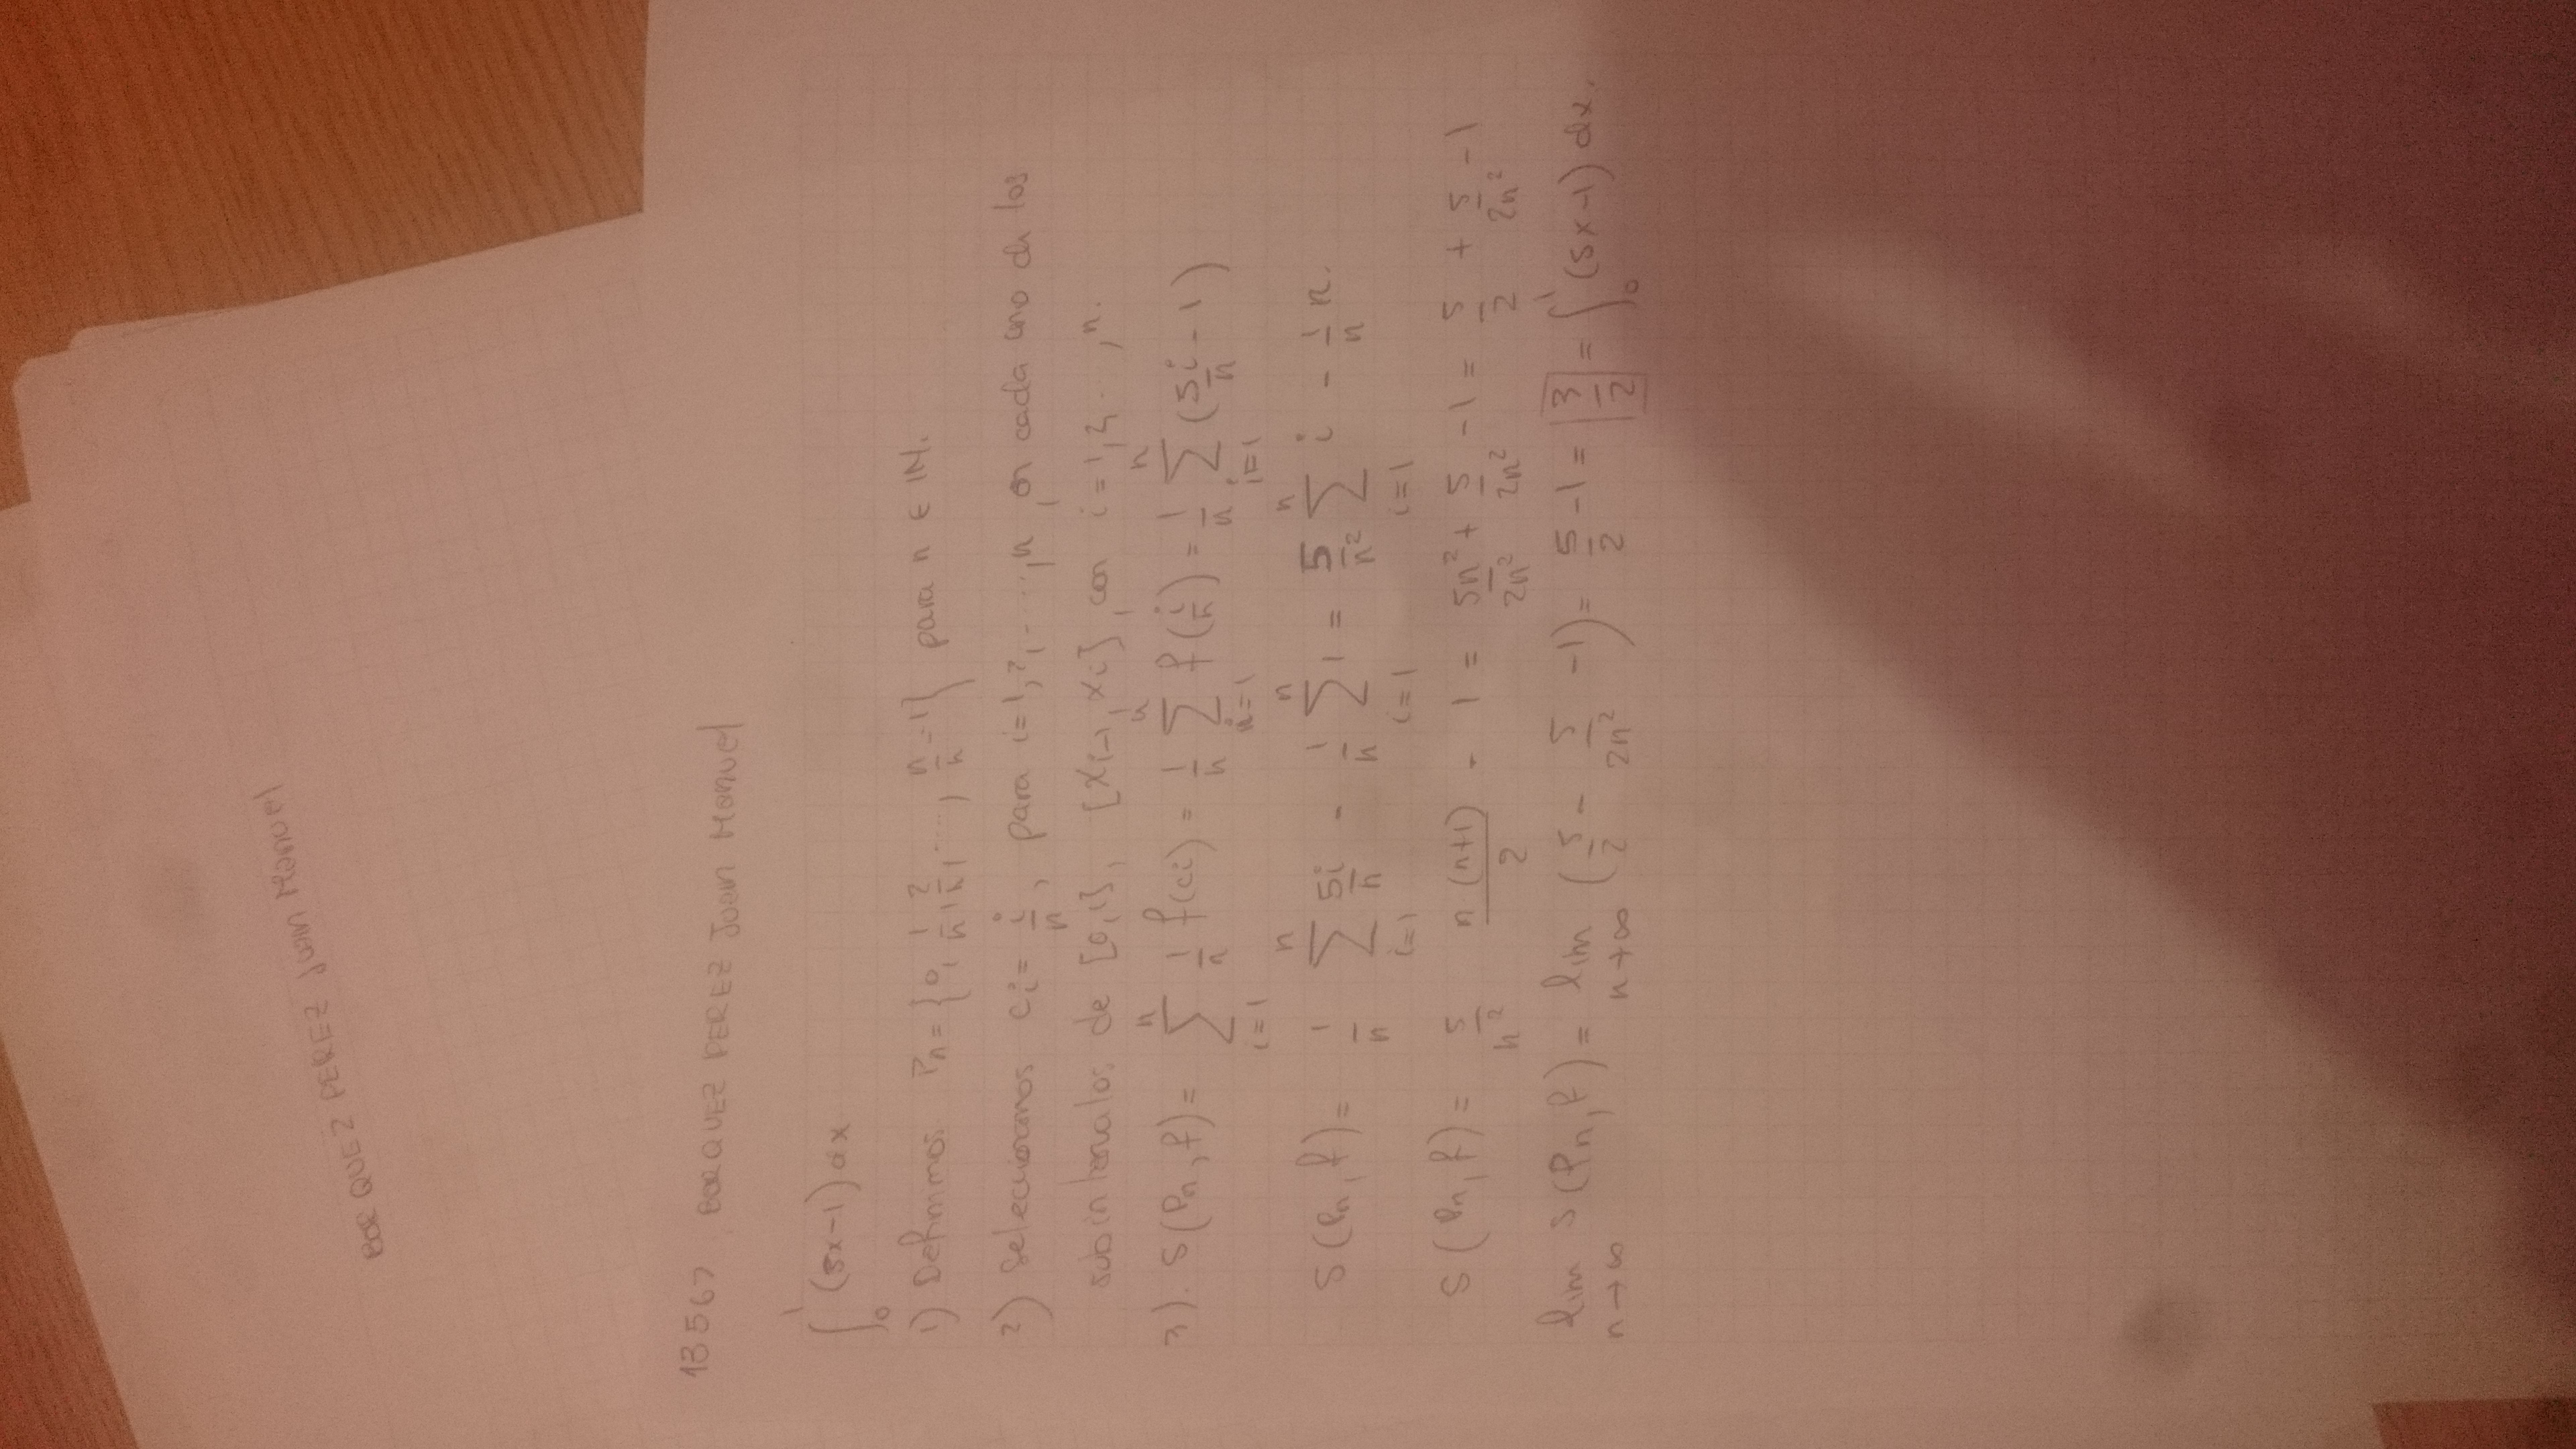 BORQUEZ PEREZ JUAN MANUEL
18567, BORQUEZ PEREZ JUAN MANUEL
∫₀¹ (5x-1)dx
1) Definimos Pn = {0, 1/n, 2/n, ..., n/n = 1} para n ∈ IN.
2) Seleccionamos ci = i/n, para i=1,2,...,n, en cada uno de los
subintervalos de [0,1], [Xi-1, Xi], con i=1,2,...,n.
3). S(Pn, f) = ∑_{i=1}^{n} 1/n f(ci) = 1/n ∑_{i=1}^{n} f(i/n) = 1/n ∑_{i=1}^{n} (5i/n - 1)
S(Pn, f) = 1/n ∑_{i=1}^{n} 5i/n - 1/n ∑_{i=1}^{n} 1 = 5/n² ∑_{i=1}^{n} i - 1/n n.
S(Pn, f) = 5/n² n(n+1)/2 - 1 = 5n²/2n² + 5/2n² - 1 = 5/2 + 5/2n² - 1
lim_{n→∞} S(Pn, f) = lim_{n→∞} (5/2 - 5/2n² - 1) = 5/2 - 1 = 3/2 = ∫₀¹ (5x-1)dx.